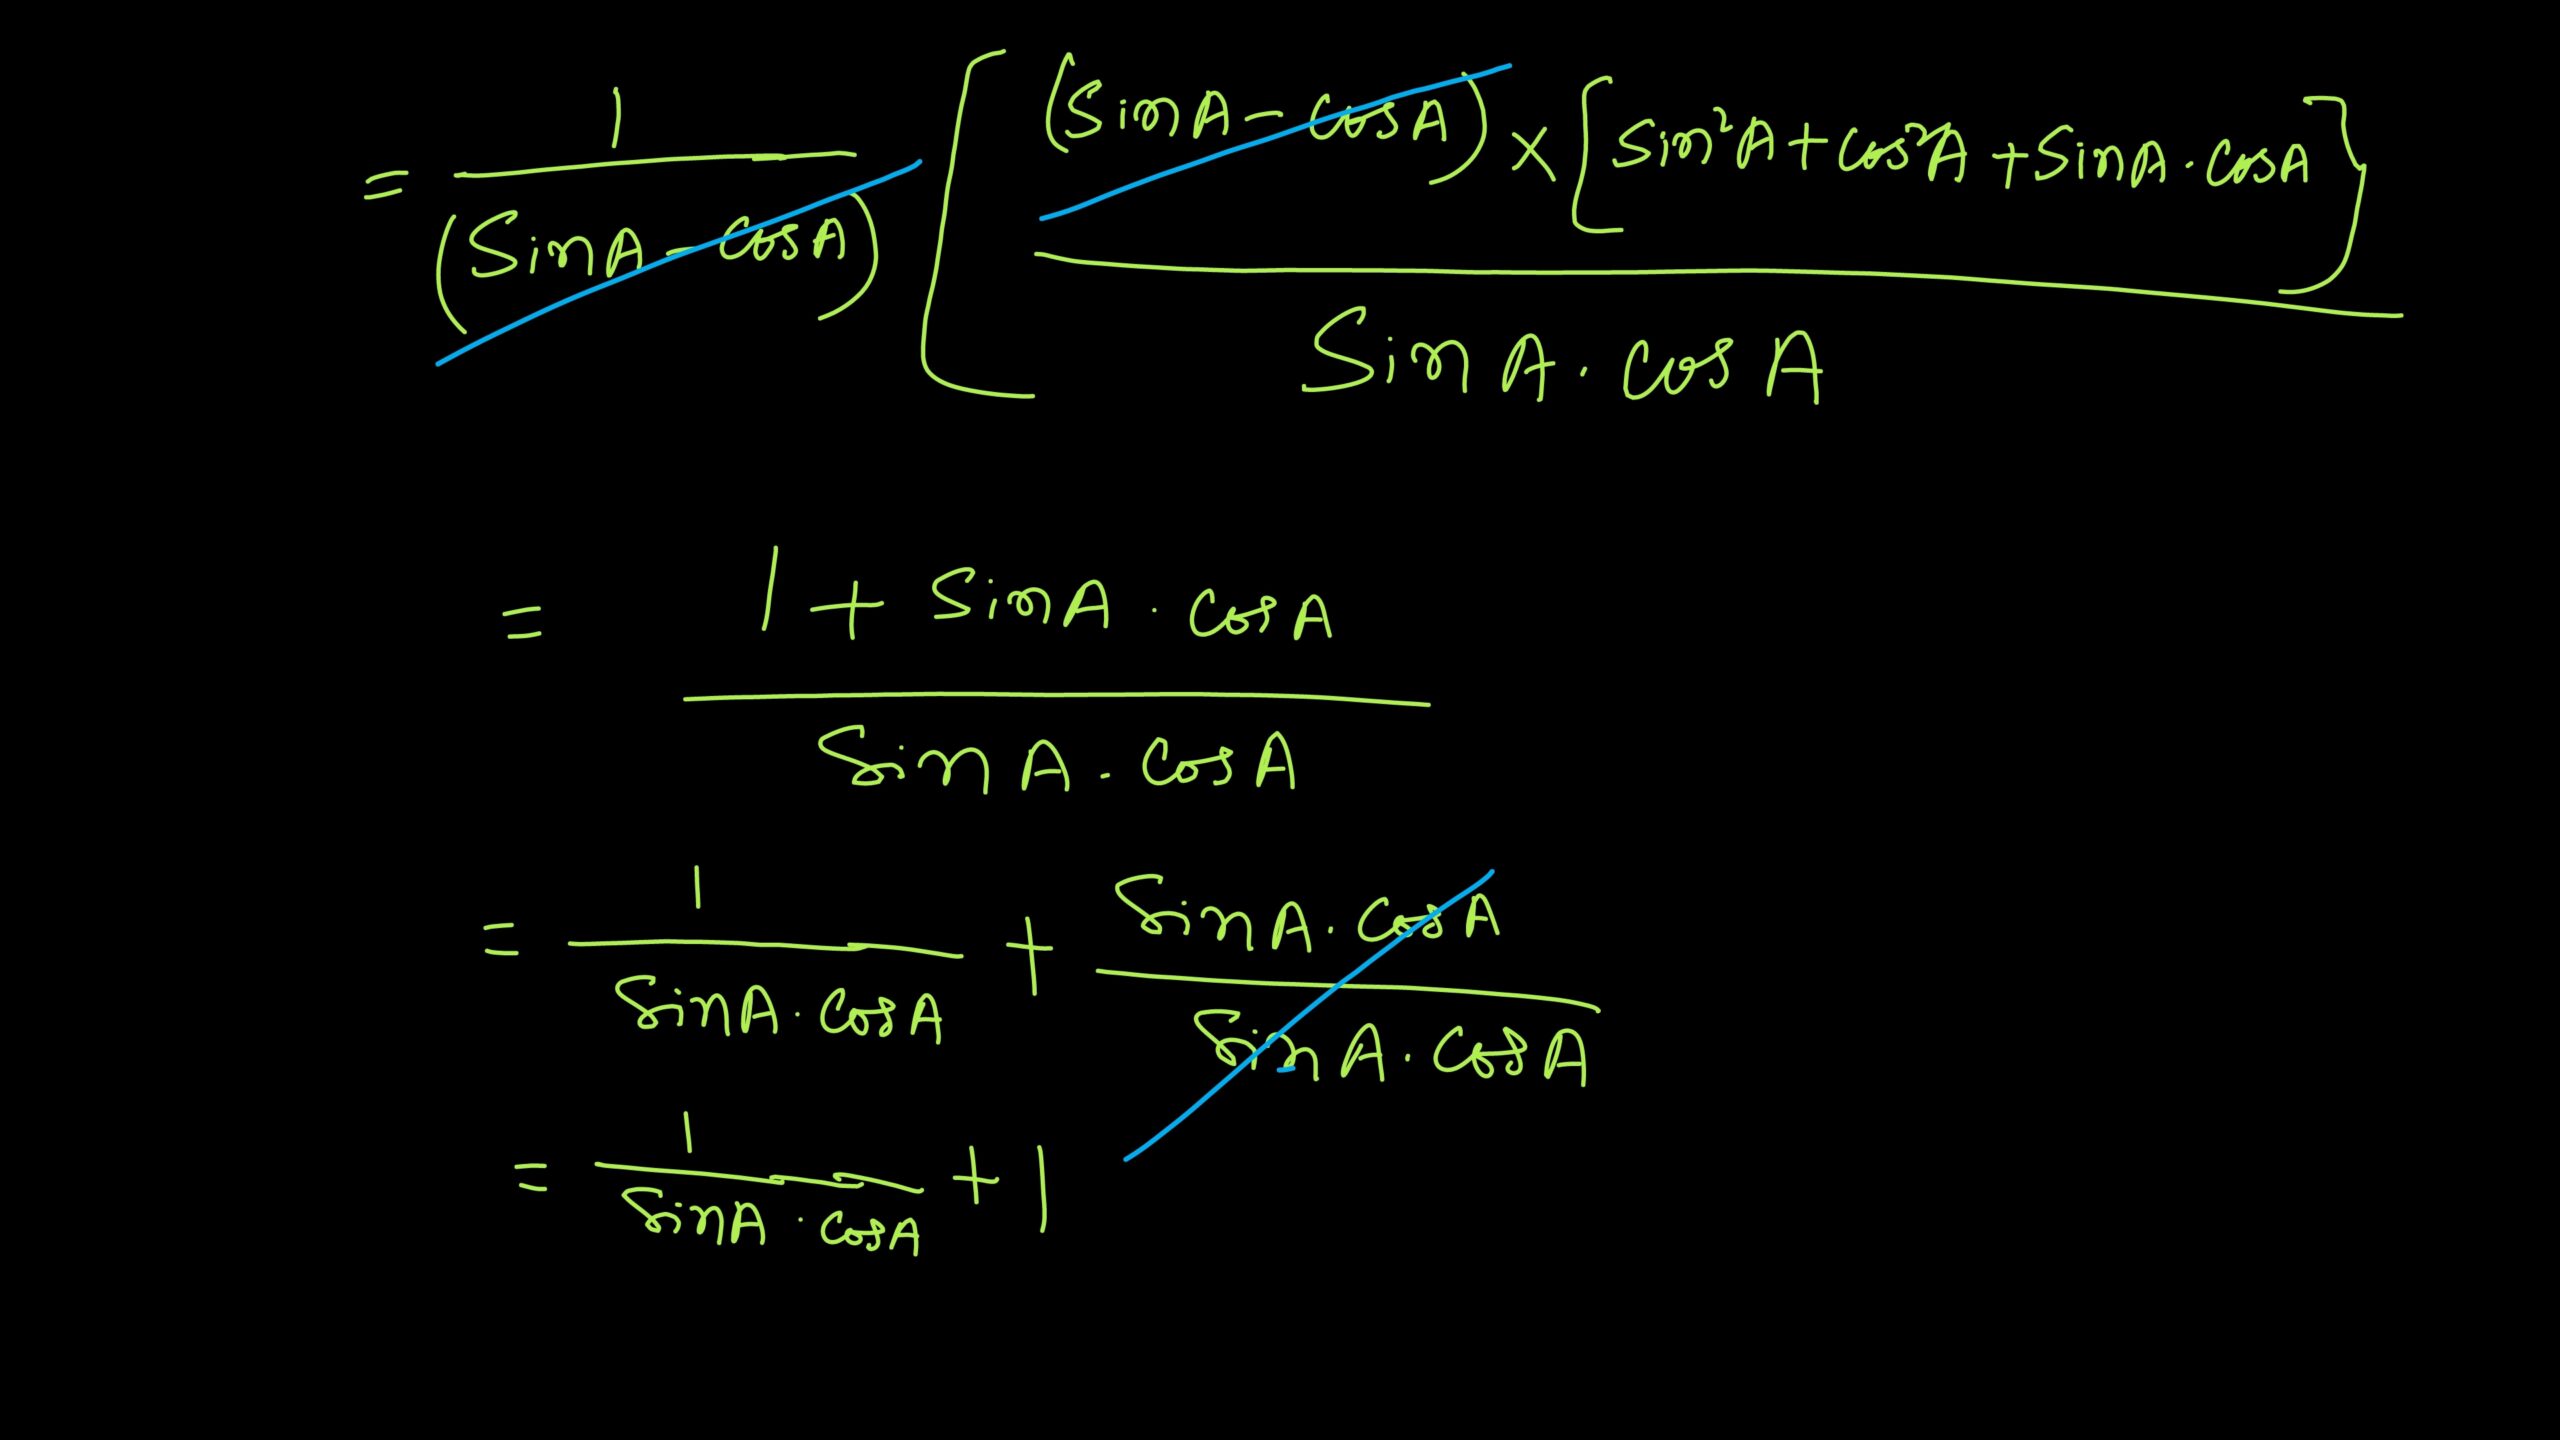 = 1/(SinA - CosA) [ (SinA - CosA) × [Sin²A + Cos²A + SinA · CosA] / SinA · CosA ]
= 1 + SinA · CosA / SinA · CosA
= 1/SinA · CosA + SinA · CosA / SinA · CosA
= 1/SinA · CosA + 1